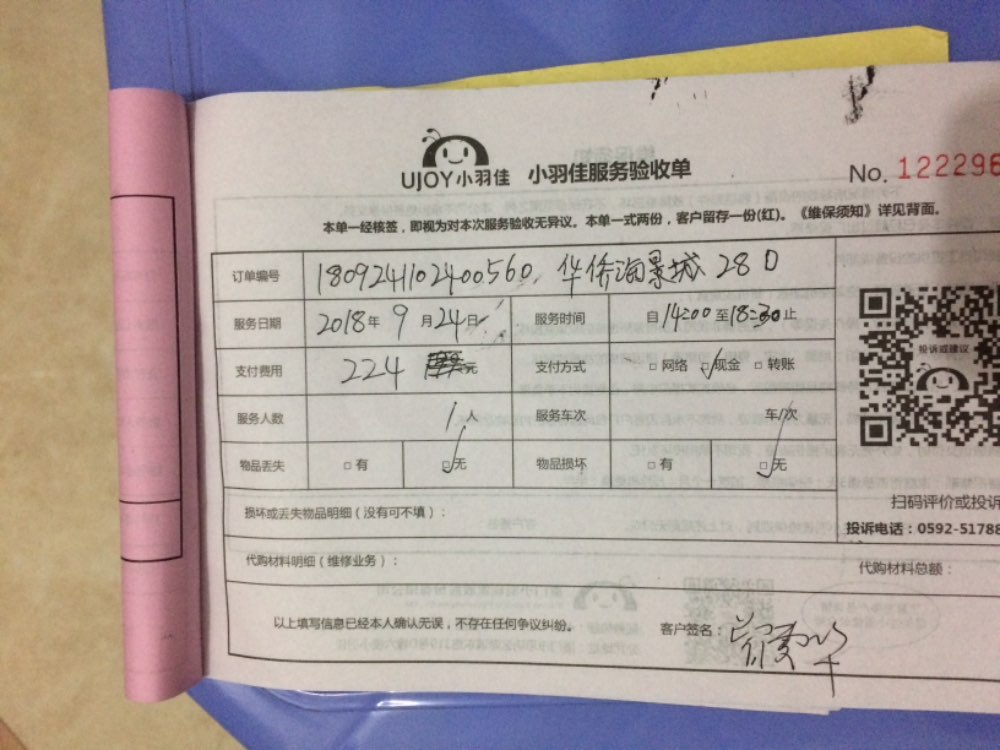 UJOY小羽佳 小羽佳服务验收单 No. 122296
本单一经核签，即视为对本次服务验收无异议。本单一式两份，客户留存一份(红)。《维保须知》详见背面。
订单编号 1809241102400560. 华侨海景城 28D
服务日期 2018年 9月24日 服务时间 自14:00至18:30止
支付费用 224 元 支付方式 □网络 □现金 □转账
服务人数 1人 服务车次 车/次
物品丢失 □有 □无 物品损坏 □有 □无
投诉或建议
损坏或丢失物品明细（没有可不填）：
扫码评价或投诉
投诉电话：0592-51788
代购材料明细（维修业务）： 代购材料总额：
以上填写信息已经本人确认无误，不存在任何争议纠纷。 客户签名：